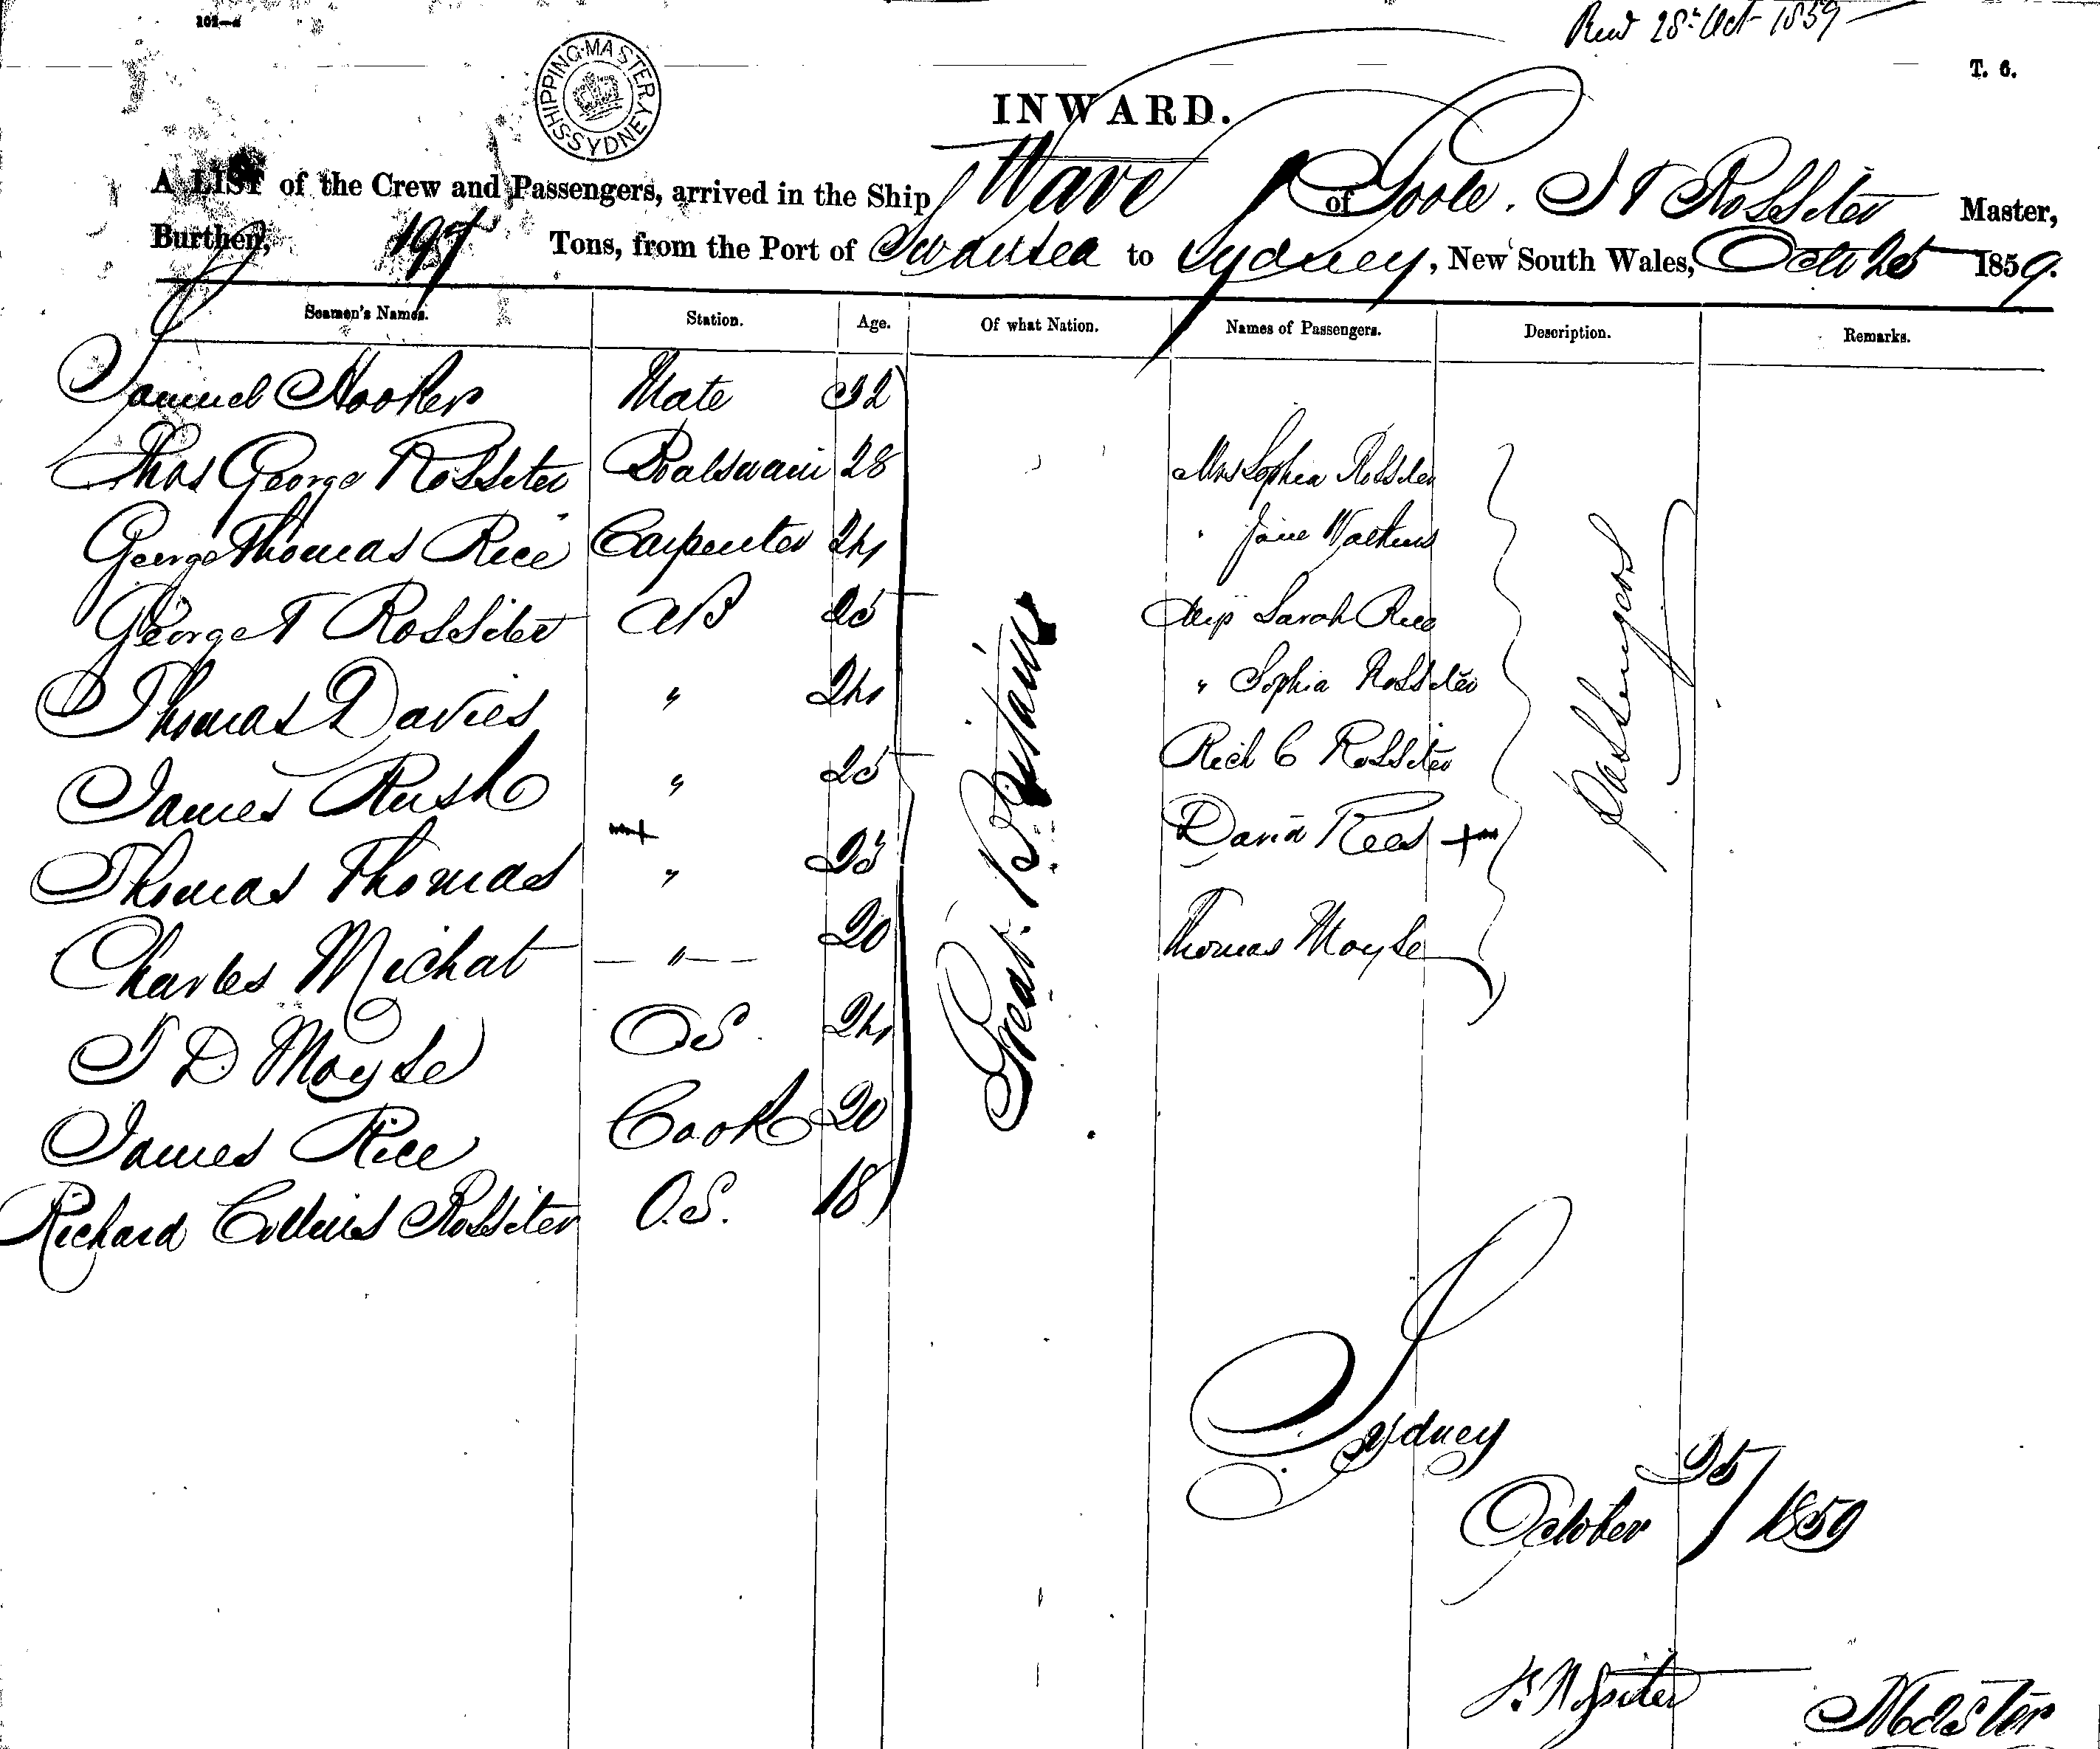 101—a
Recd 28th Oct 1859
T. 6.
SHIPPING MASTER SYDNEY
INWARD.
A LIST of the Crew and Passengers, arrived in the Ship Wave of Poole. S T Rossiter Master,
Burthen, 197 Tons, from the Port of Swansea to Sydney, New South Wales, Octr 25 1859.
Seamen's Names. Station. Age. Of what Nation. Names of Passengers. Description. Remarks.
Samuel Hooker Mate 32
Thos George Rossiter Boatswain 28 Mrs Sophia Rossiter
George Thomas Rice Carpenter 24 " Jane Watkins
George T Rossiter AB 25 Miss Sarah Rice
Thomas Davies " 24 " Sophia Rossiter
James Rush " 25 Rich C Rossiter
Thomas Thomas " 25 David Rees
Charles Michat " 20 Thomas Moyse
T D Moyse OS 24
James Rice Cook 20
Richard Collins Rossiter O.S. 18
Great Britain
Passengers
Sydney
October 25/1859
Rossiter Master